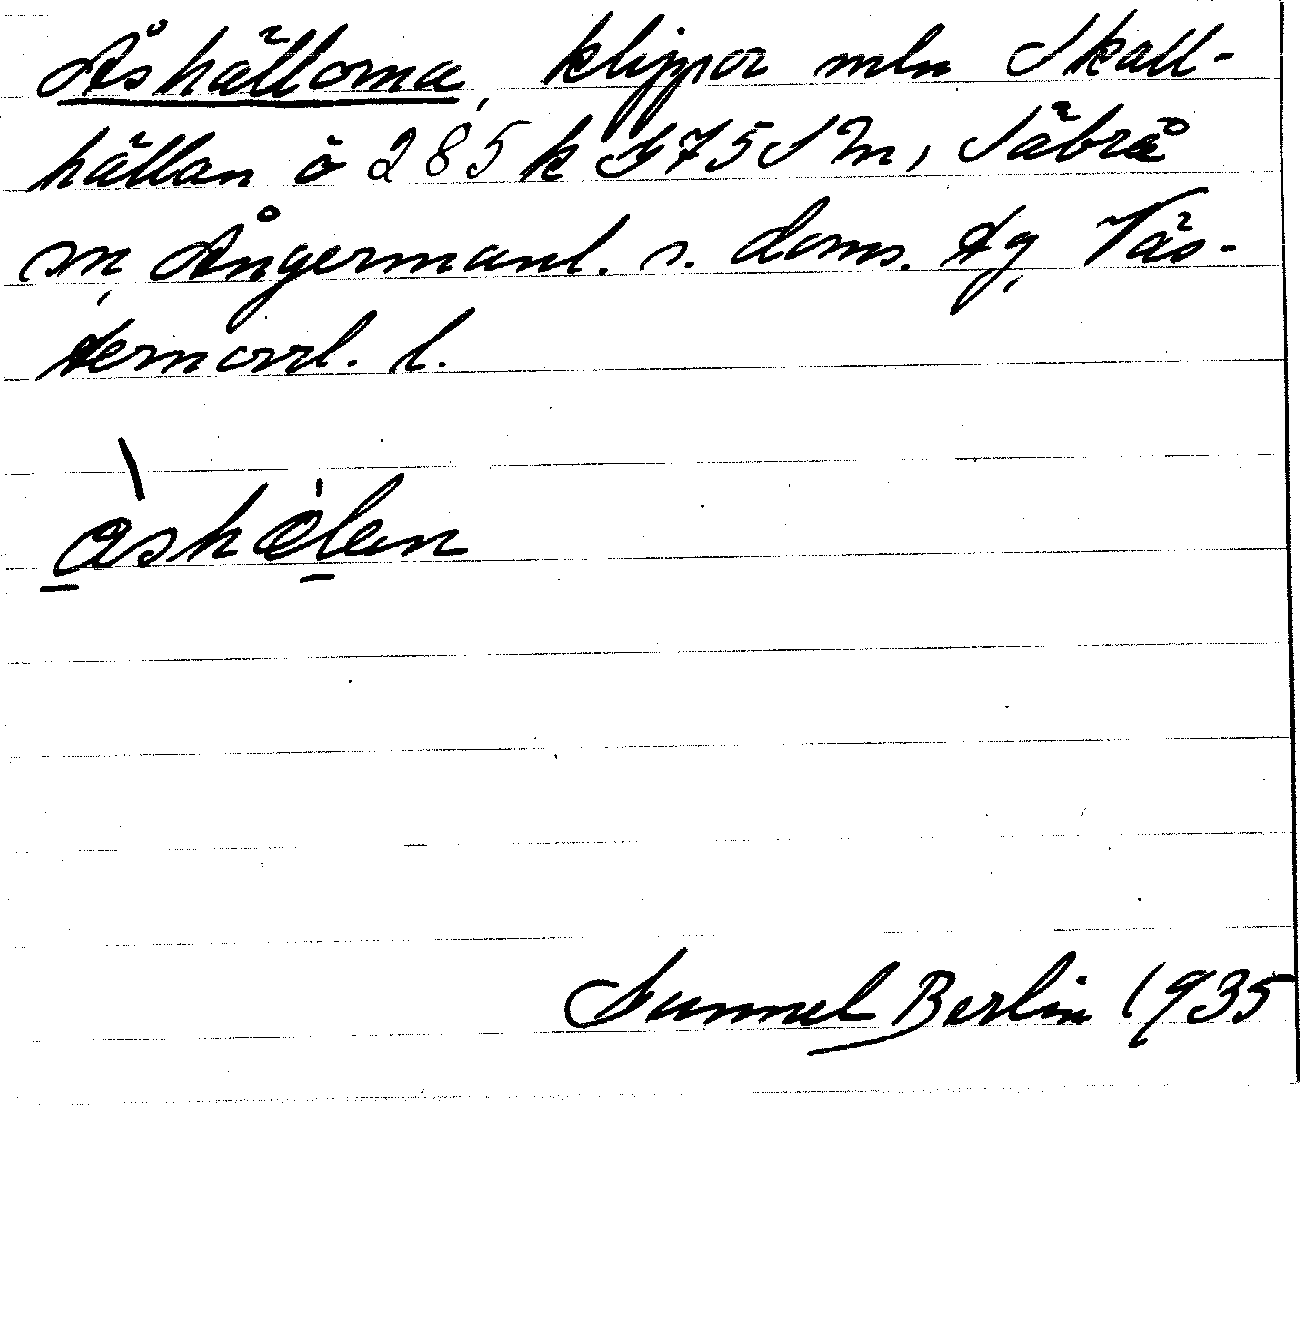 Åshällorna, klippor mln Skall-
hällan o 285 k I 75 S m, Säbrå
sn, Ångermanl. s. doms. tg, Väs-
ternorrl. l.
åshælan
Sammel Berlin 1935